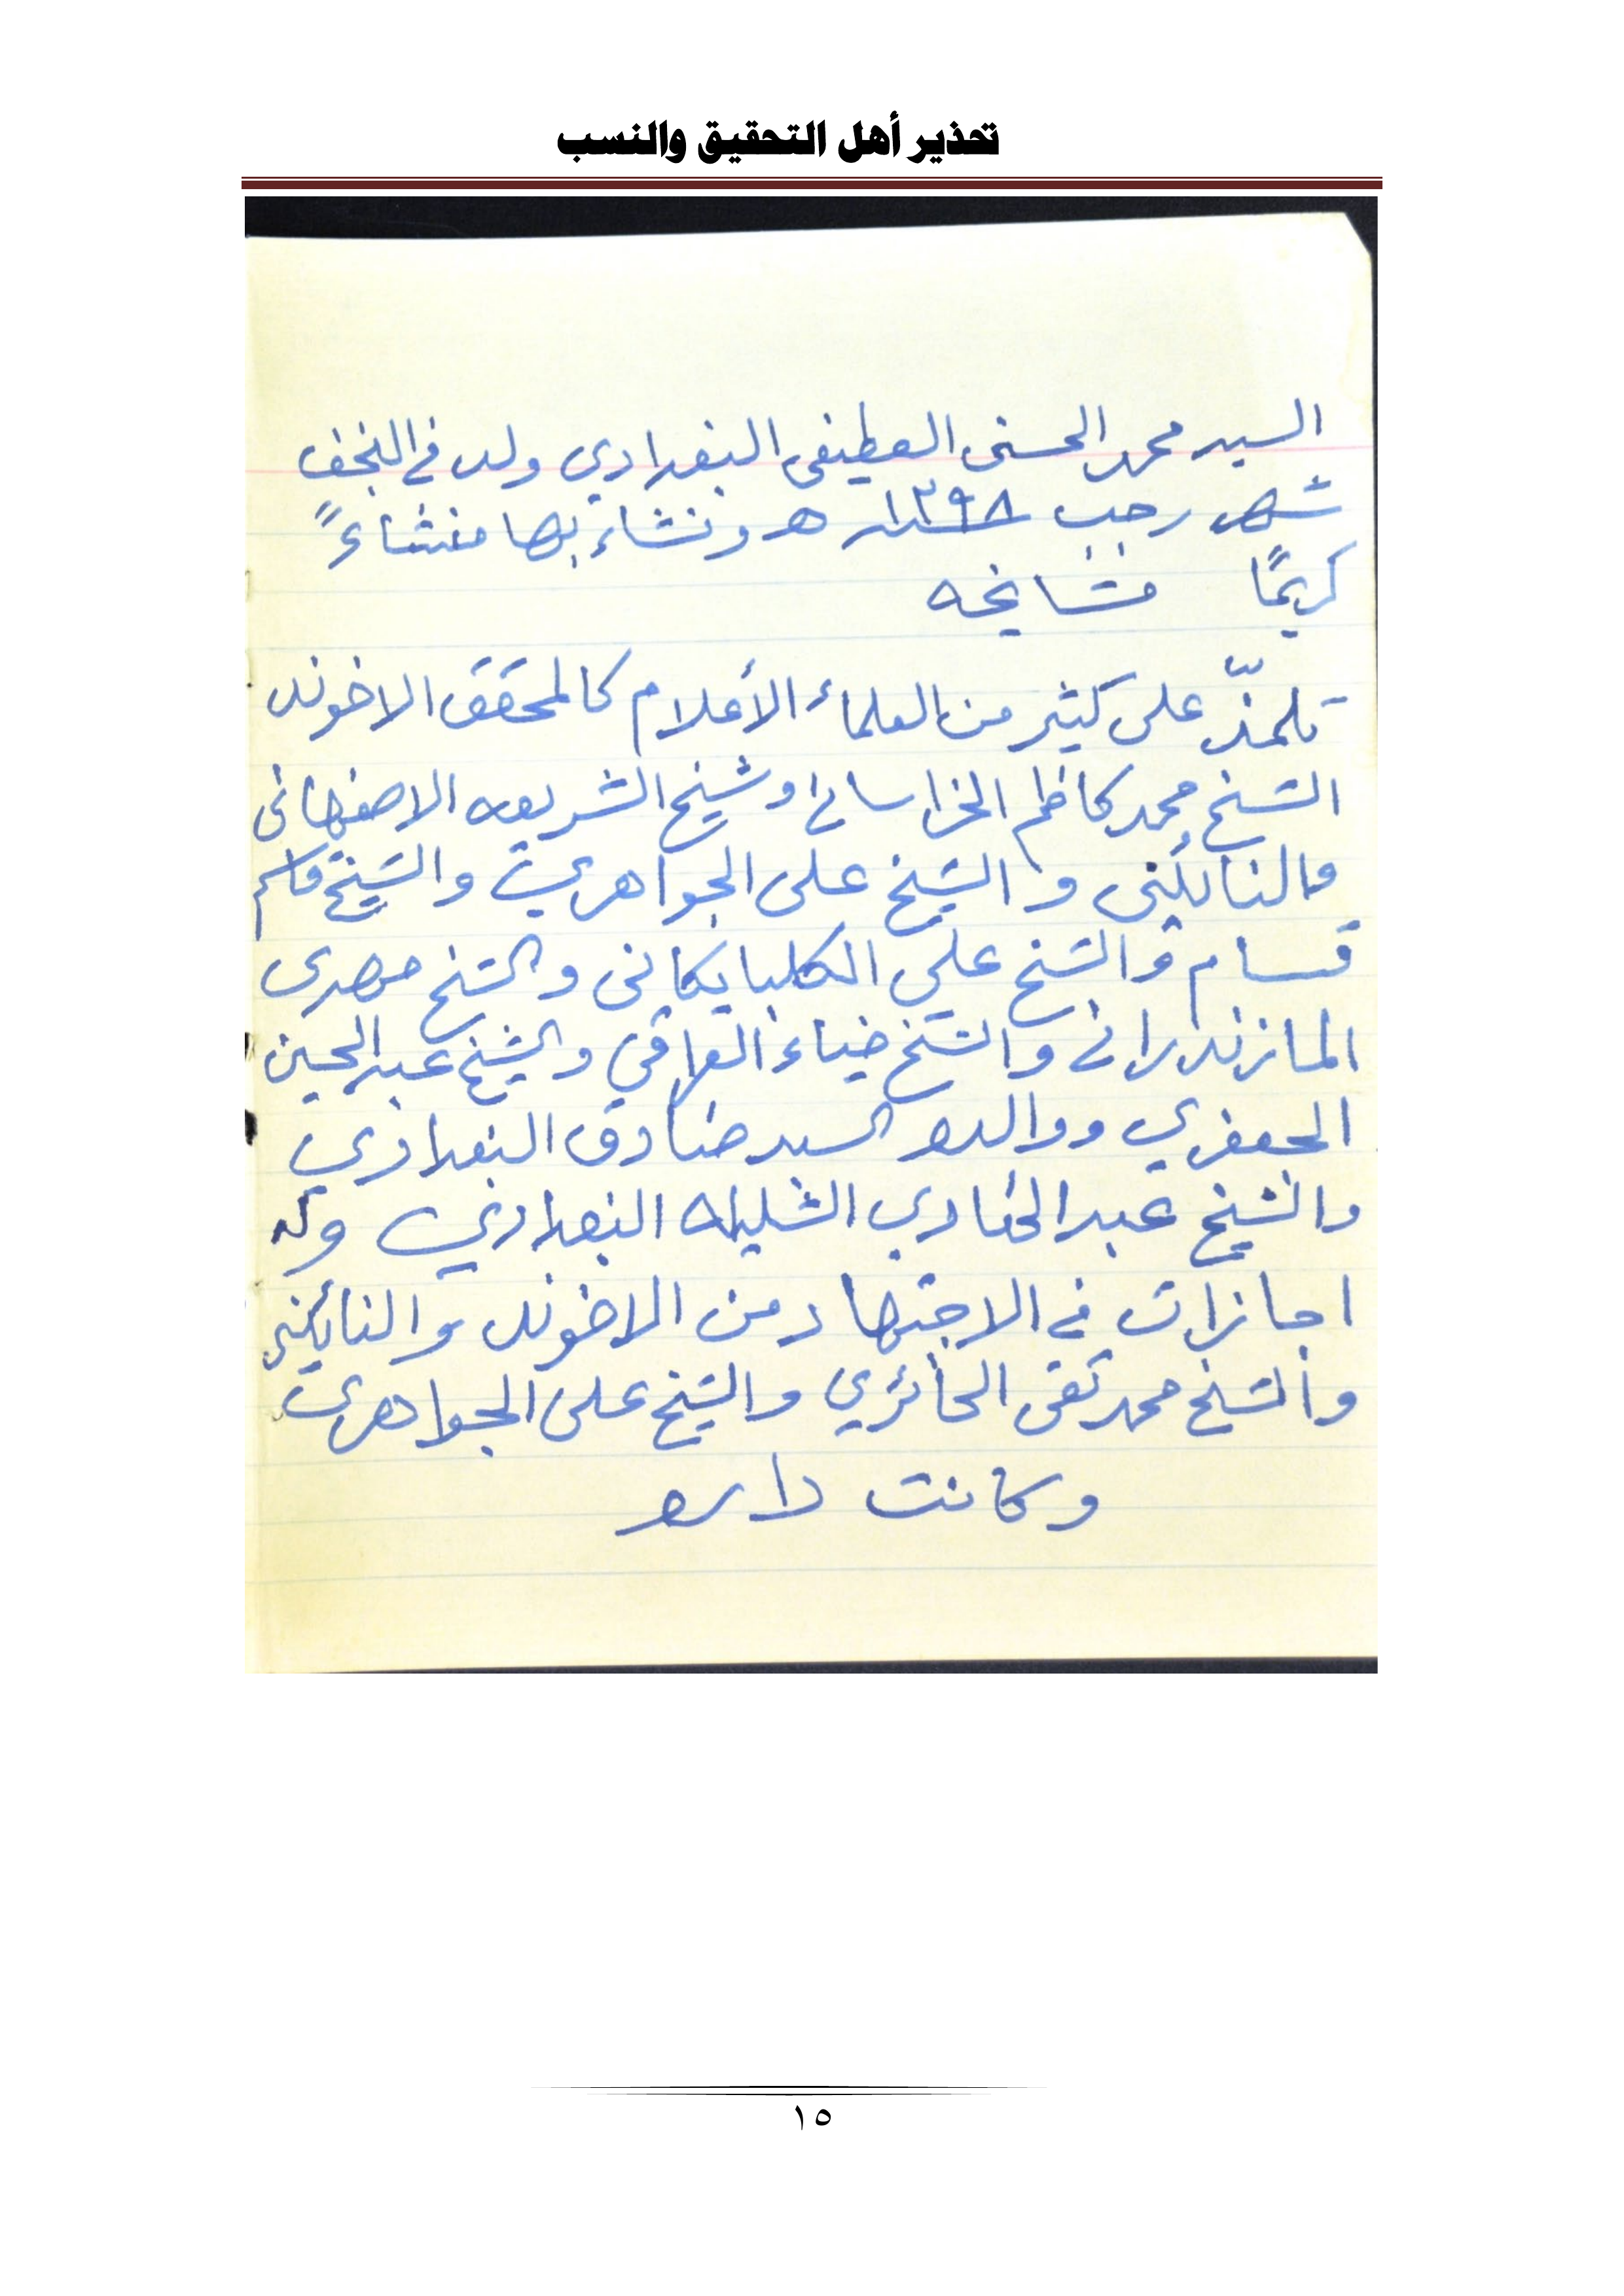 تحذير أهل التحقيق والنسب
السيد محمد الحسني العطيفي البغدادي ولد في النجف
شهر رجب ١٣٩٨ هـ ونشاء بها منشاءً
كريمًا مشايخه
تلمذّ على كثير من العلماء الأعلام كالمحقق الاخوند
الشيخ محمد كاظم الخراساني وشيخ الشريعه الاصفهاني
والنائيني والشيخ على الجواهري والشيخ قاسم
قسام والشيخ علي الكلبايكاني والشيخ مهدي
المازندراني والشيخ ضياء العراقي والشيخ عبد الحسين
الجعفري ووالده السيد صادق البغدادي
والشيخ عبد الهادي الشليله البغدادي وله
اجازات في الاجتهاد من الاخوند والنائيني
والشيخ محمد تقي الحائري والشيخ على الجواهري
وكانت داره
١٥